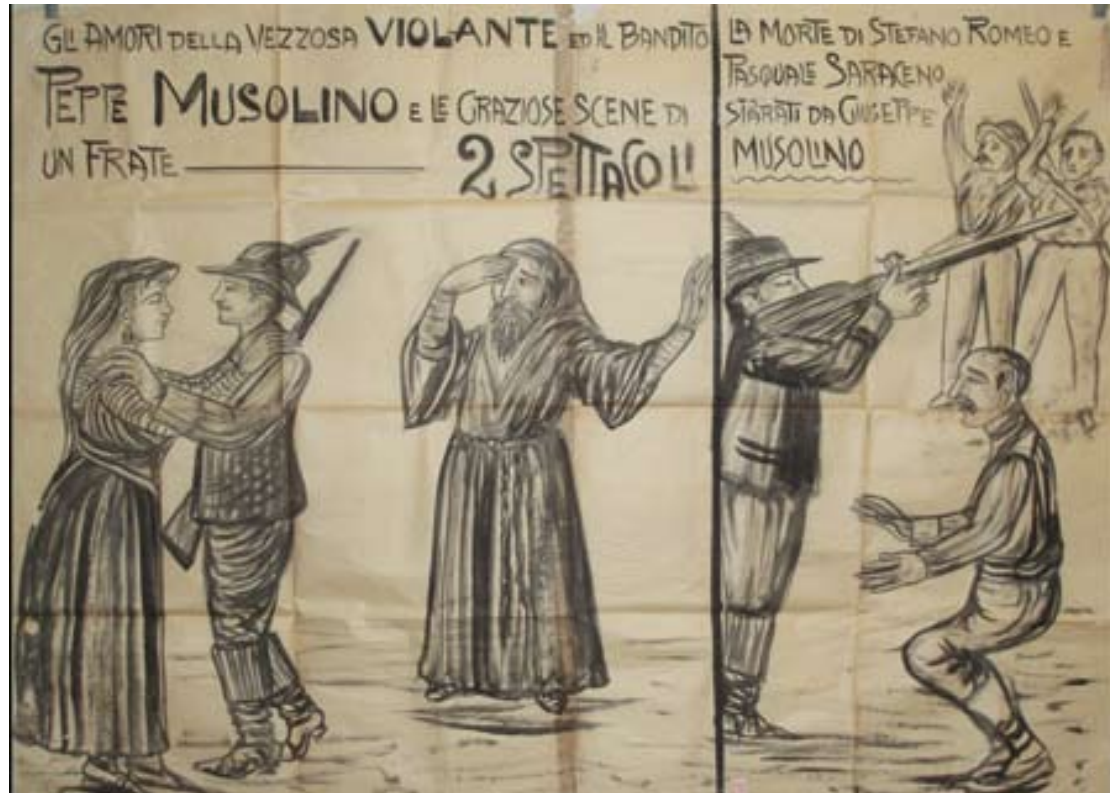 GLI AMORI DELLA VEZZOSA VIOLANTE ED IL BANDITO
PEPPE MUSOLINO E LE GRAZIOSE SCENE DI
UN FRATE 2 SPETTACOLI
LA MORTE DI STEFANO ROMEO E
PASQUALE SARACENO
SPARATI DA GIUSEPPE
MUSOLINO